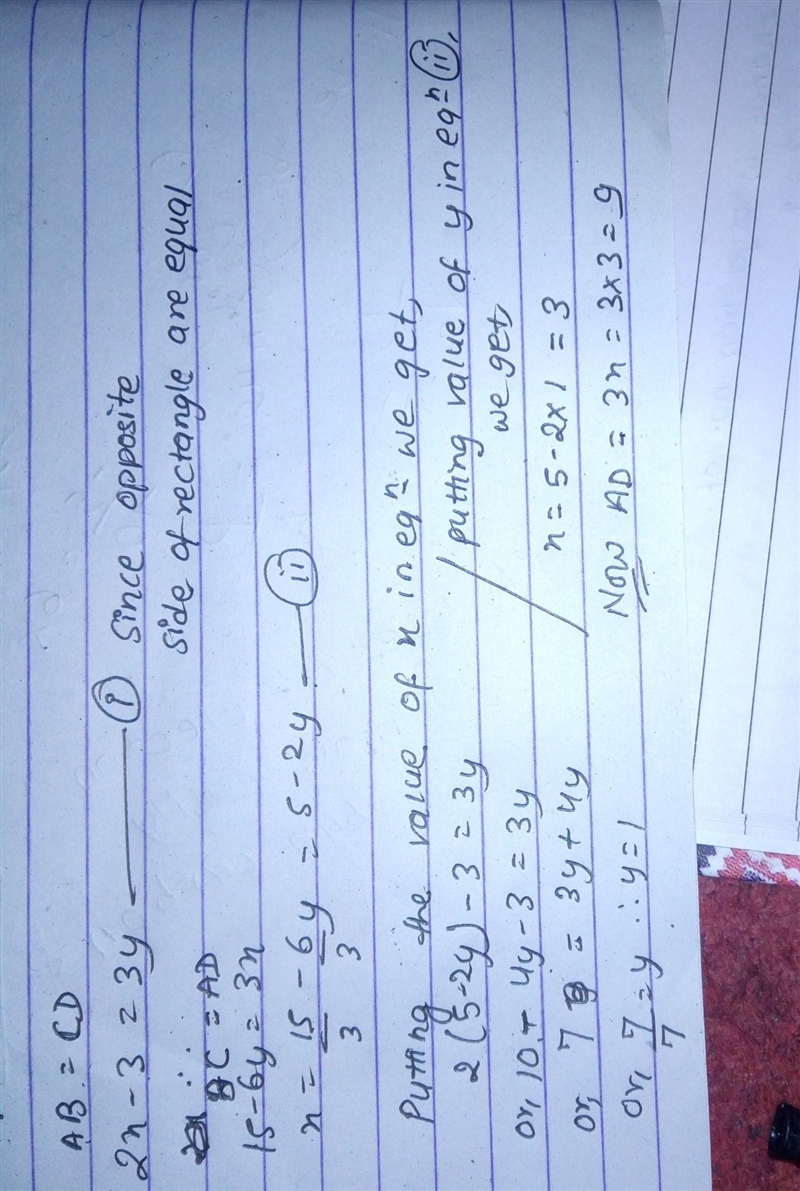 AB = CD
2x - 3 = 3y —— (i) Since opposite
side of rectangle are equal
∴ BC = AD
15 - 6y = 3x
x = 15/3 - 6y/3 = 5 - 2y —— (ii)
Putting the value of x in eqⁿ we get,
2(5-2y) - 3 = 3y
or, 10 - 4y - 3 = 3y
or, 7 = 3y + 4y
or, 7/7 = y ∴ y = 1
putting value of y in eqⁿ (ii),
we get,
x = 5 - 2x1 = 3
Now AD = 3x = 3x3 = 9